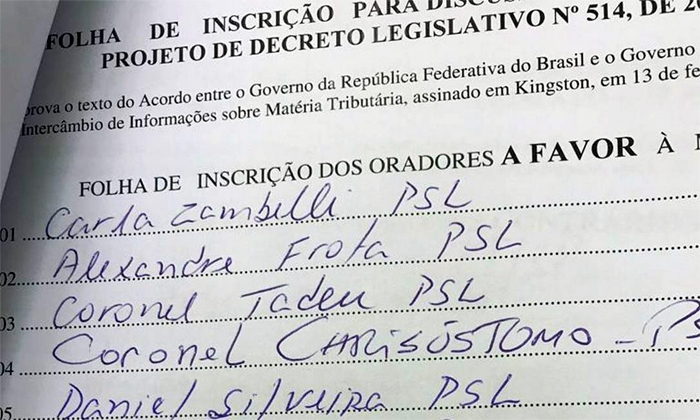 FOLHA DE INSCRIÇÃO PARA DISCUS
PROJETO DE DECRETO LEGISLATIVO Nº 514, DE 2
prova o texto do Acordo entre o Governo da República Federativa do Brasil e o Governo
Intercâmbio de Informações sobre Matéria Tributária, assinado em Kingston, em 13 de fe
FOLHA DE INSCRIÇÃO DOS ORADORES A FAVOR À
01 Carla Zambelli PSL
02 Alexandre Frota PSL
03 Coronel Tadeu PSL
04 Coronel CHRISÓSTOMO - PS
05 Daniel Silveira PSL